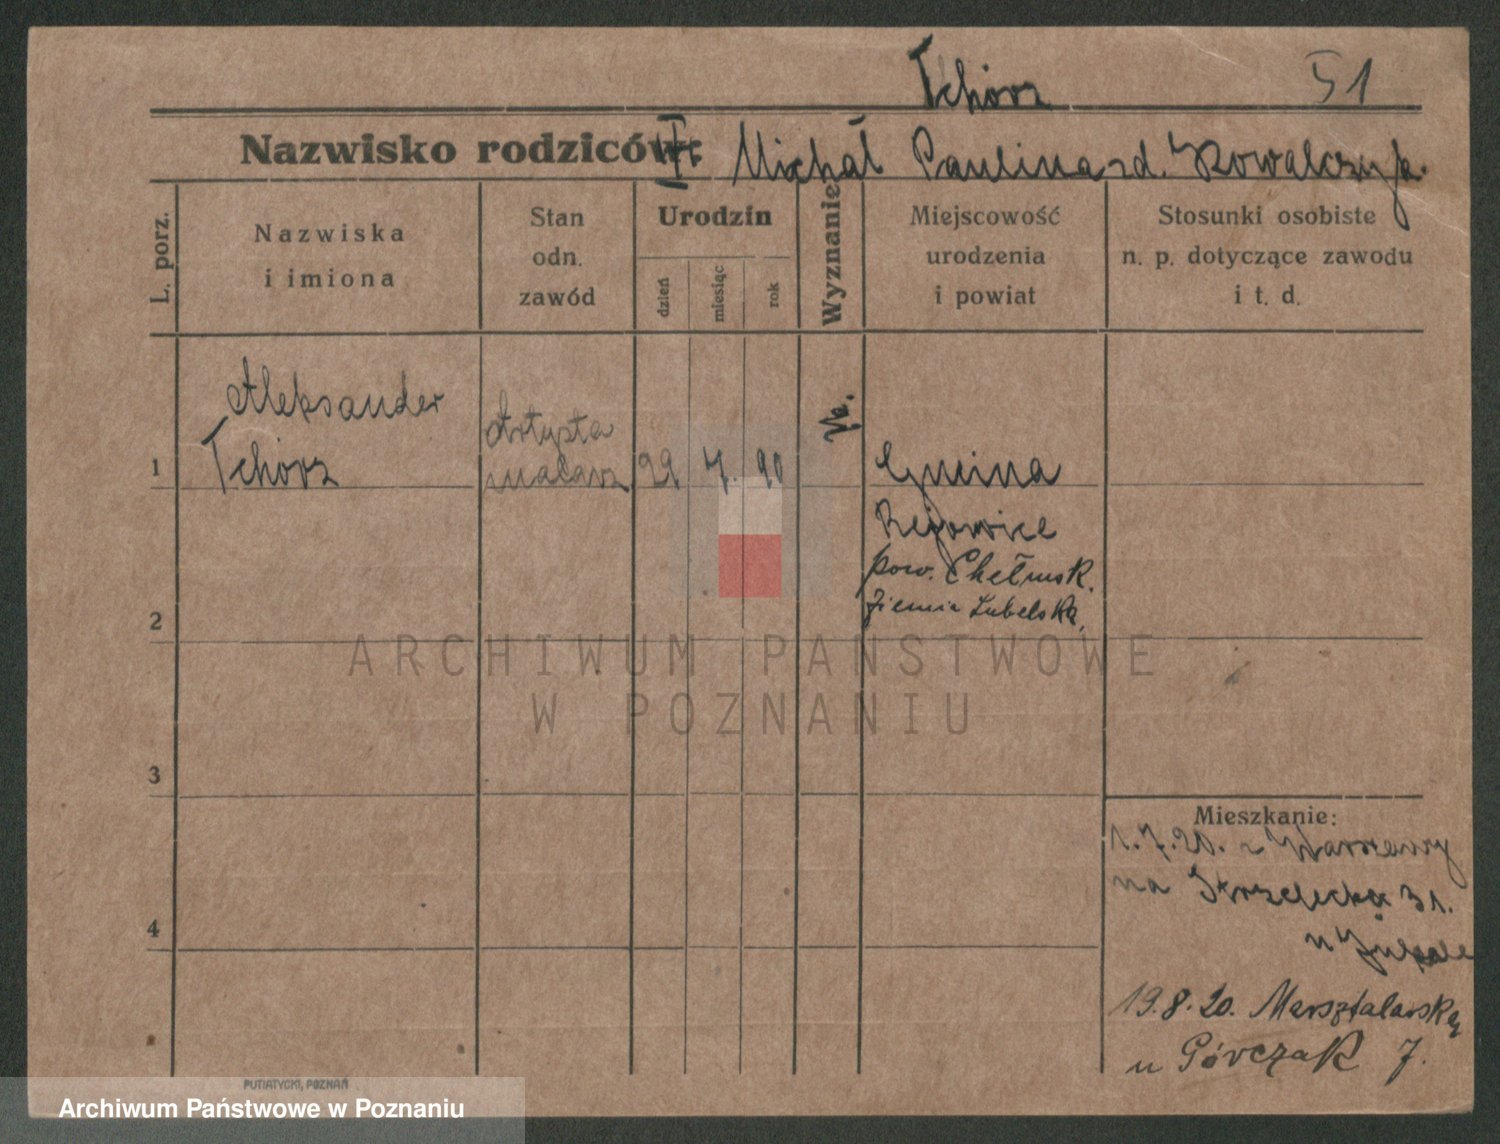 Tchórz 51
Nazwisko rodziców: Michał Paulina zd. Kowalczyk.
L. porz.
Nazwiska
i imiona
Stan
odn.
zawód
Urodzin
dzień
miesiąc
rok
Wyznanie
Miejscowość
urodzenia
i powiat
Stosunki osobiste
n. p. dotyczące zawodu
i t. d.
1
Aleksander
Tchórz
Artysta
malarz
29 7. 90
Gmina
Rejowice
pow. Chełmsk.
Ziemia Lubelska,
2
3
4
ARCHIWUM PAŃSTWOWE
W POZNANIU
Mieszkanie:
1.7.20. z Warszawy
na Strzelecką 31.
u
19.8.20. Marsztalarska
u Górczak 7.
PUTIATYCKI, POZNAŃ
Archiwum Państwowe w Poznaniu